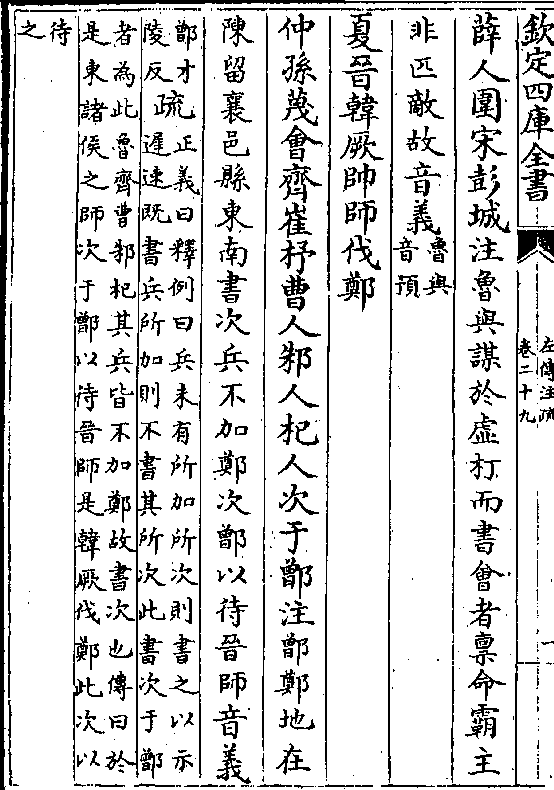 欽定四庫全書
左傳注疏
卷二十九
一
薛人圍宋彭城注魯與謀於虛朾而書會者禀命霸主
非匹敵故音義魯與
音預
夏晉韓厥帥師伐鄭
仲孫蔑會齊崔杼曹人邾人杞人次于鄫注鄫鄭地在
陳留襄邑縣東南書次兵不加鄭次鄫以待晉師音義
鄫才
陵反
疏正義曰釋例曰兵未有所加所次則書之以示
遲速既書兵所加則不書其所次此書次于鄫
者為此魯齊曹邾杞其兵皆不加鄭故書次也傳曰於
是東諸侯之師次于鄫以待晉師是韓厥伐鄭此次以
待
之